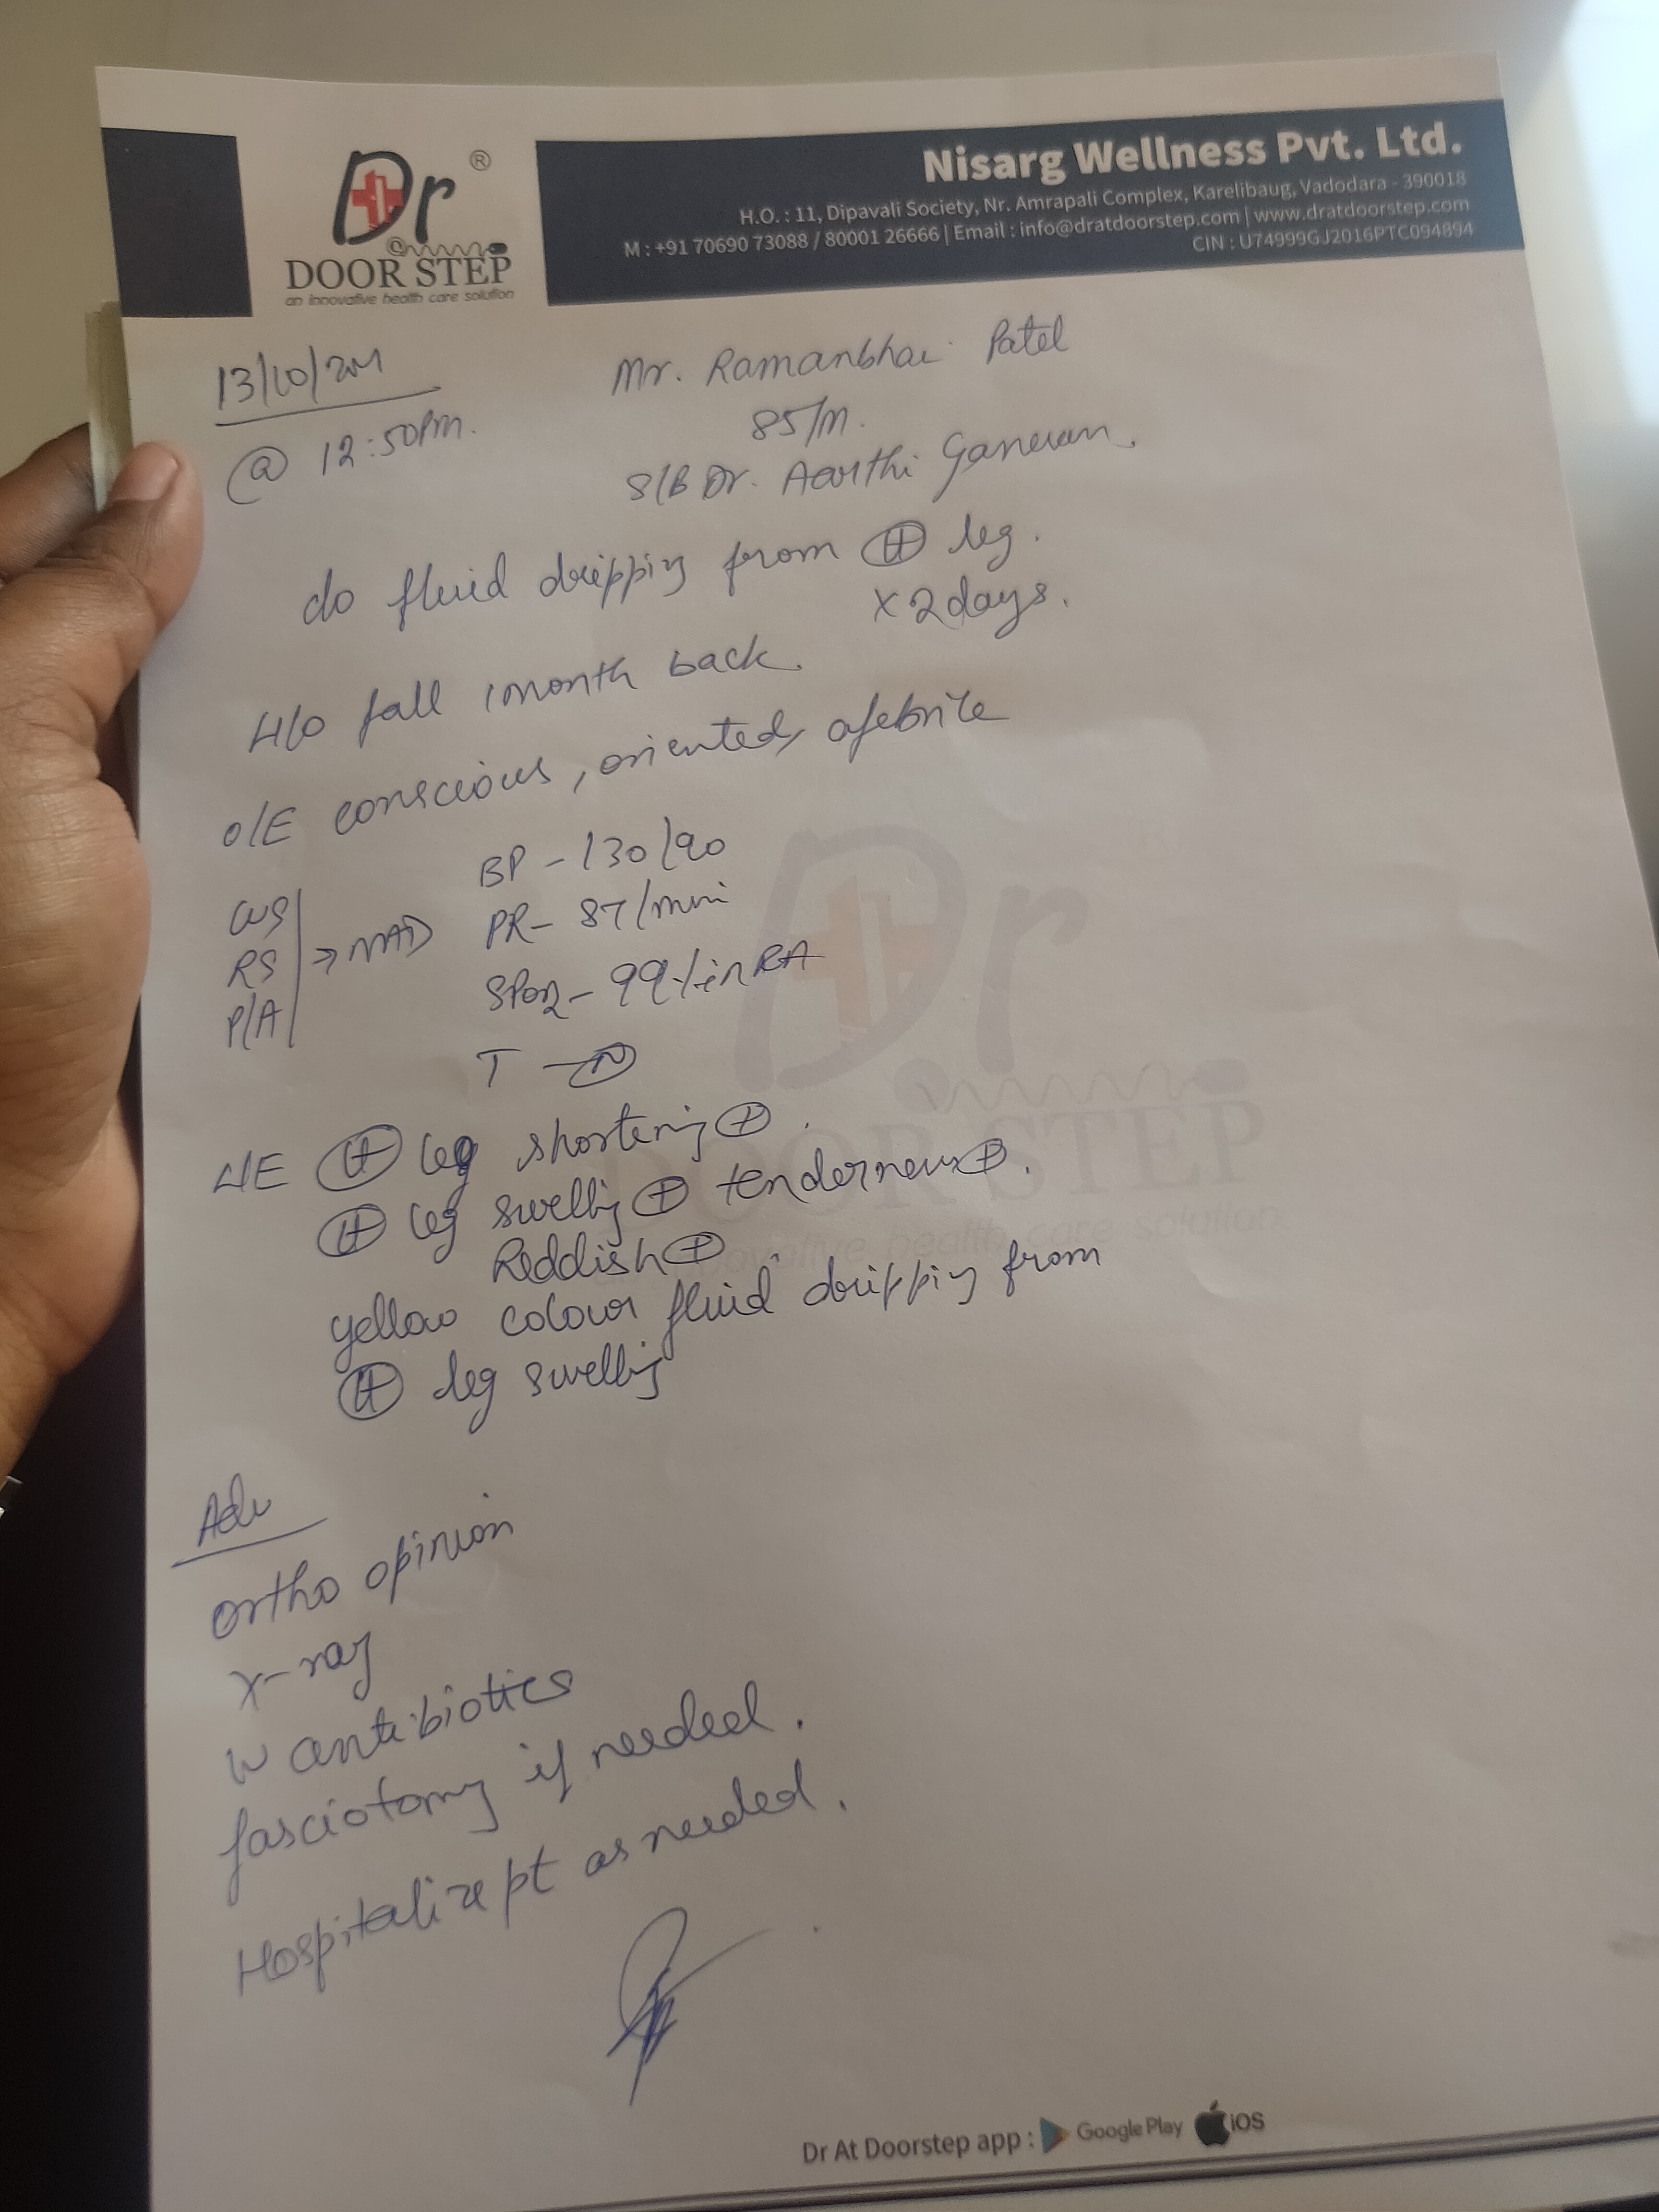 Dr ®
DOOR STEP
an innovative health care solution
Nisarg Wellness Pvt. Ltd.
H.O. : 11, Dipavali Society, Nr. Amrapali Complex, Karelibaug, Vadodara - 390018
M : +91 70690 73088 / 80001 26666 | Email : info@dratdoorstep.com | www.dratdoorstep.com
CIN : U74999GJ2016PTC094894
13/10/24
@ 12:50pm.
Mr. Ramanbhai Patel
85/M.
S/B Dr. Aarthi Ganesan.
c/o fluid dripping from leg.
x 2 days.
H/o fall 1 month back.
O/E conscious, oriented, afebrile
CVS
RS
P/A
→ NAD
BP - 130/90
PR - 87/min
SPO2 - 99% in RA
T - N
L/E leg shorting +.
leg swelling + tenderness +.
Reddish +
yellow colour fluid dripping from
leg swelling
Adv
ortho opinion
x-ray
IV antibiotics
fasciotomy if needed.
Hospitalize pt as needed.
Dr
DOOR STEP
an innovative health care solution
Dr At Doorstep app : Google Play iOS